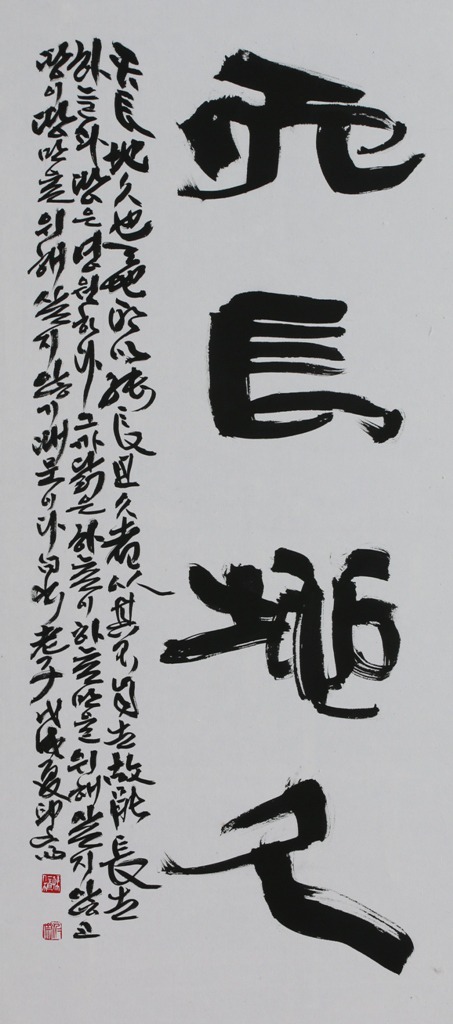 天長地久
天長地久也天地所以能長且久者以其不自生故能長生
하늘과 땅은 영원하다 그 까닭은 하늘이 하늘만을 위해 살지 않고
땅이 땅만을 위해 살지 않기 때문이다 老子 戊戌夏